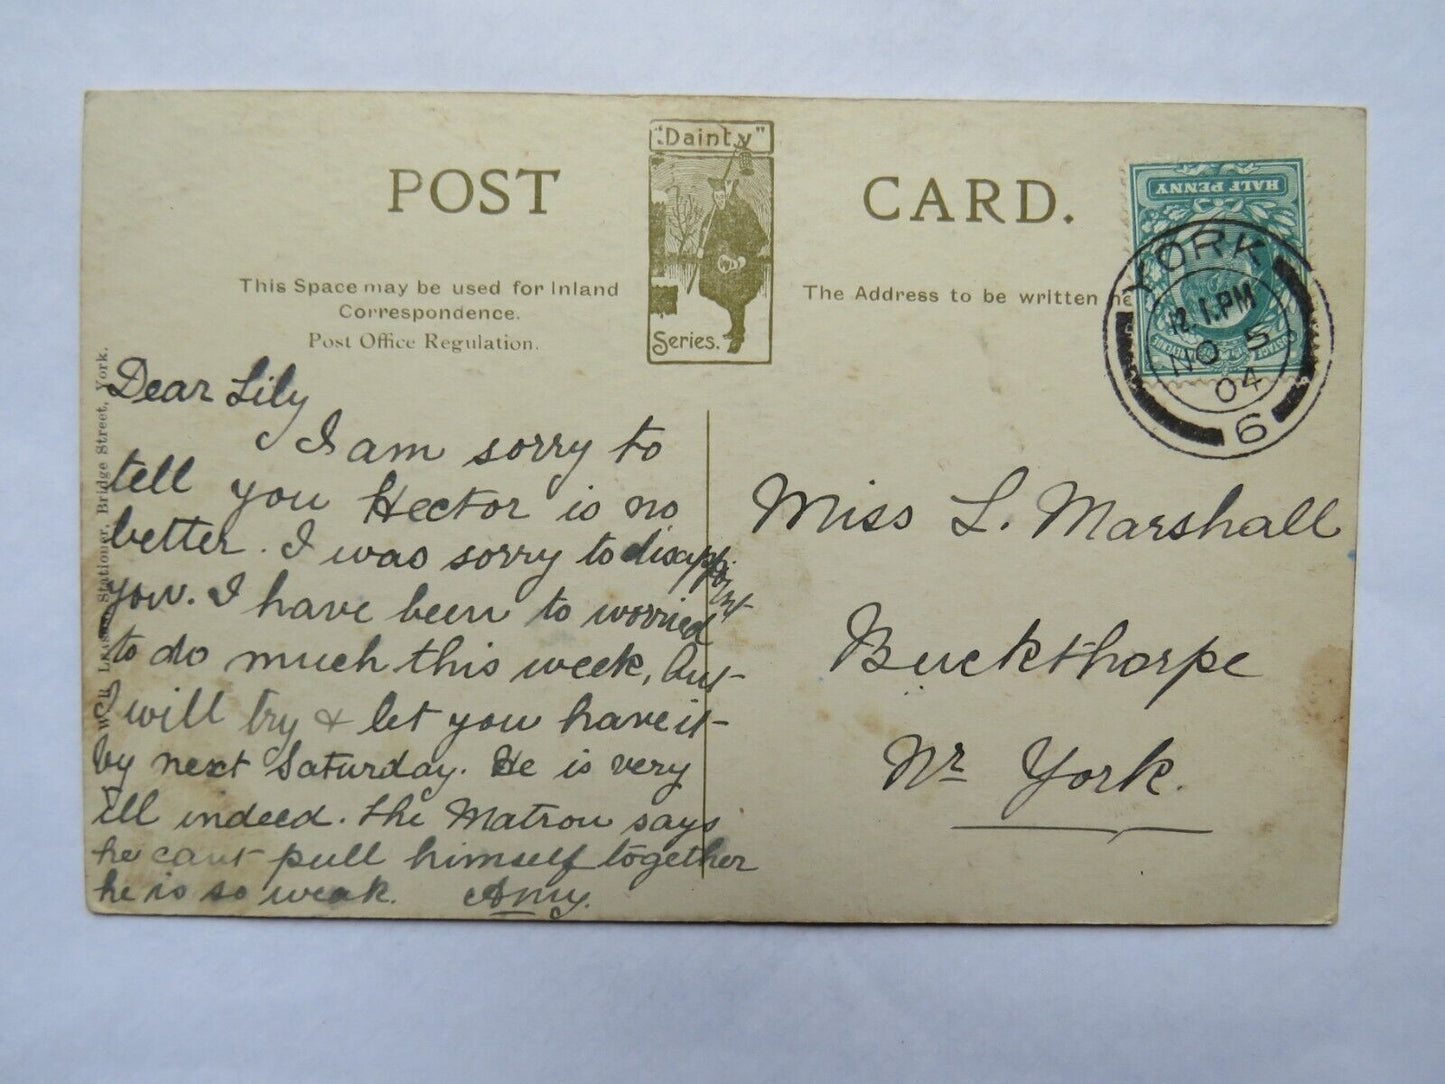 POST CARD.
"Dainty"
Series.
This Space may be used for Inland
Correspondence.
Post Office Regulation.
The Address to be written he
HALF PENNY
POSTAGE
YORK
12.1.PM
NO 5
04
6
Stationer, Bridge Street, York.
Dear Lily
I am sorry to
tell you Hector is no
better. I was sorry to disappoint
you. I have been to worried
to do much this week, but
I will try & let you have it
by next Saturday. He is very
ill indeed. the Matron says
he cant pull himself together
he is so weak. Amy.
Miss L. Marshall
Buckthorpe
Nr York.